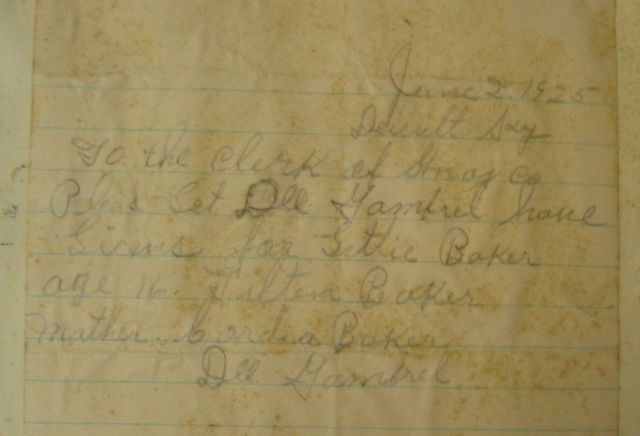 June 2. 1925
Dewitt Ky
To the Clerk of Knox Co
Pleas let Dll Gambrel have
Licens for Gettie Baker
age 16. Filten Baker
Mother. Cordia Baker
Dll Gambrel